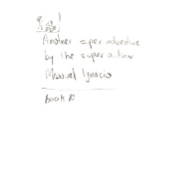 Another super adventure
by the super author
Manuel Ignacio
book 10